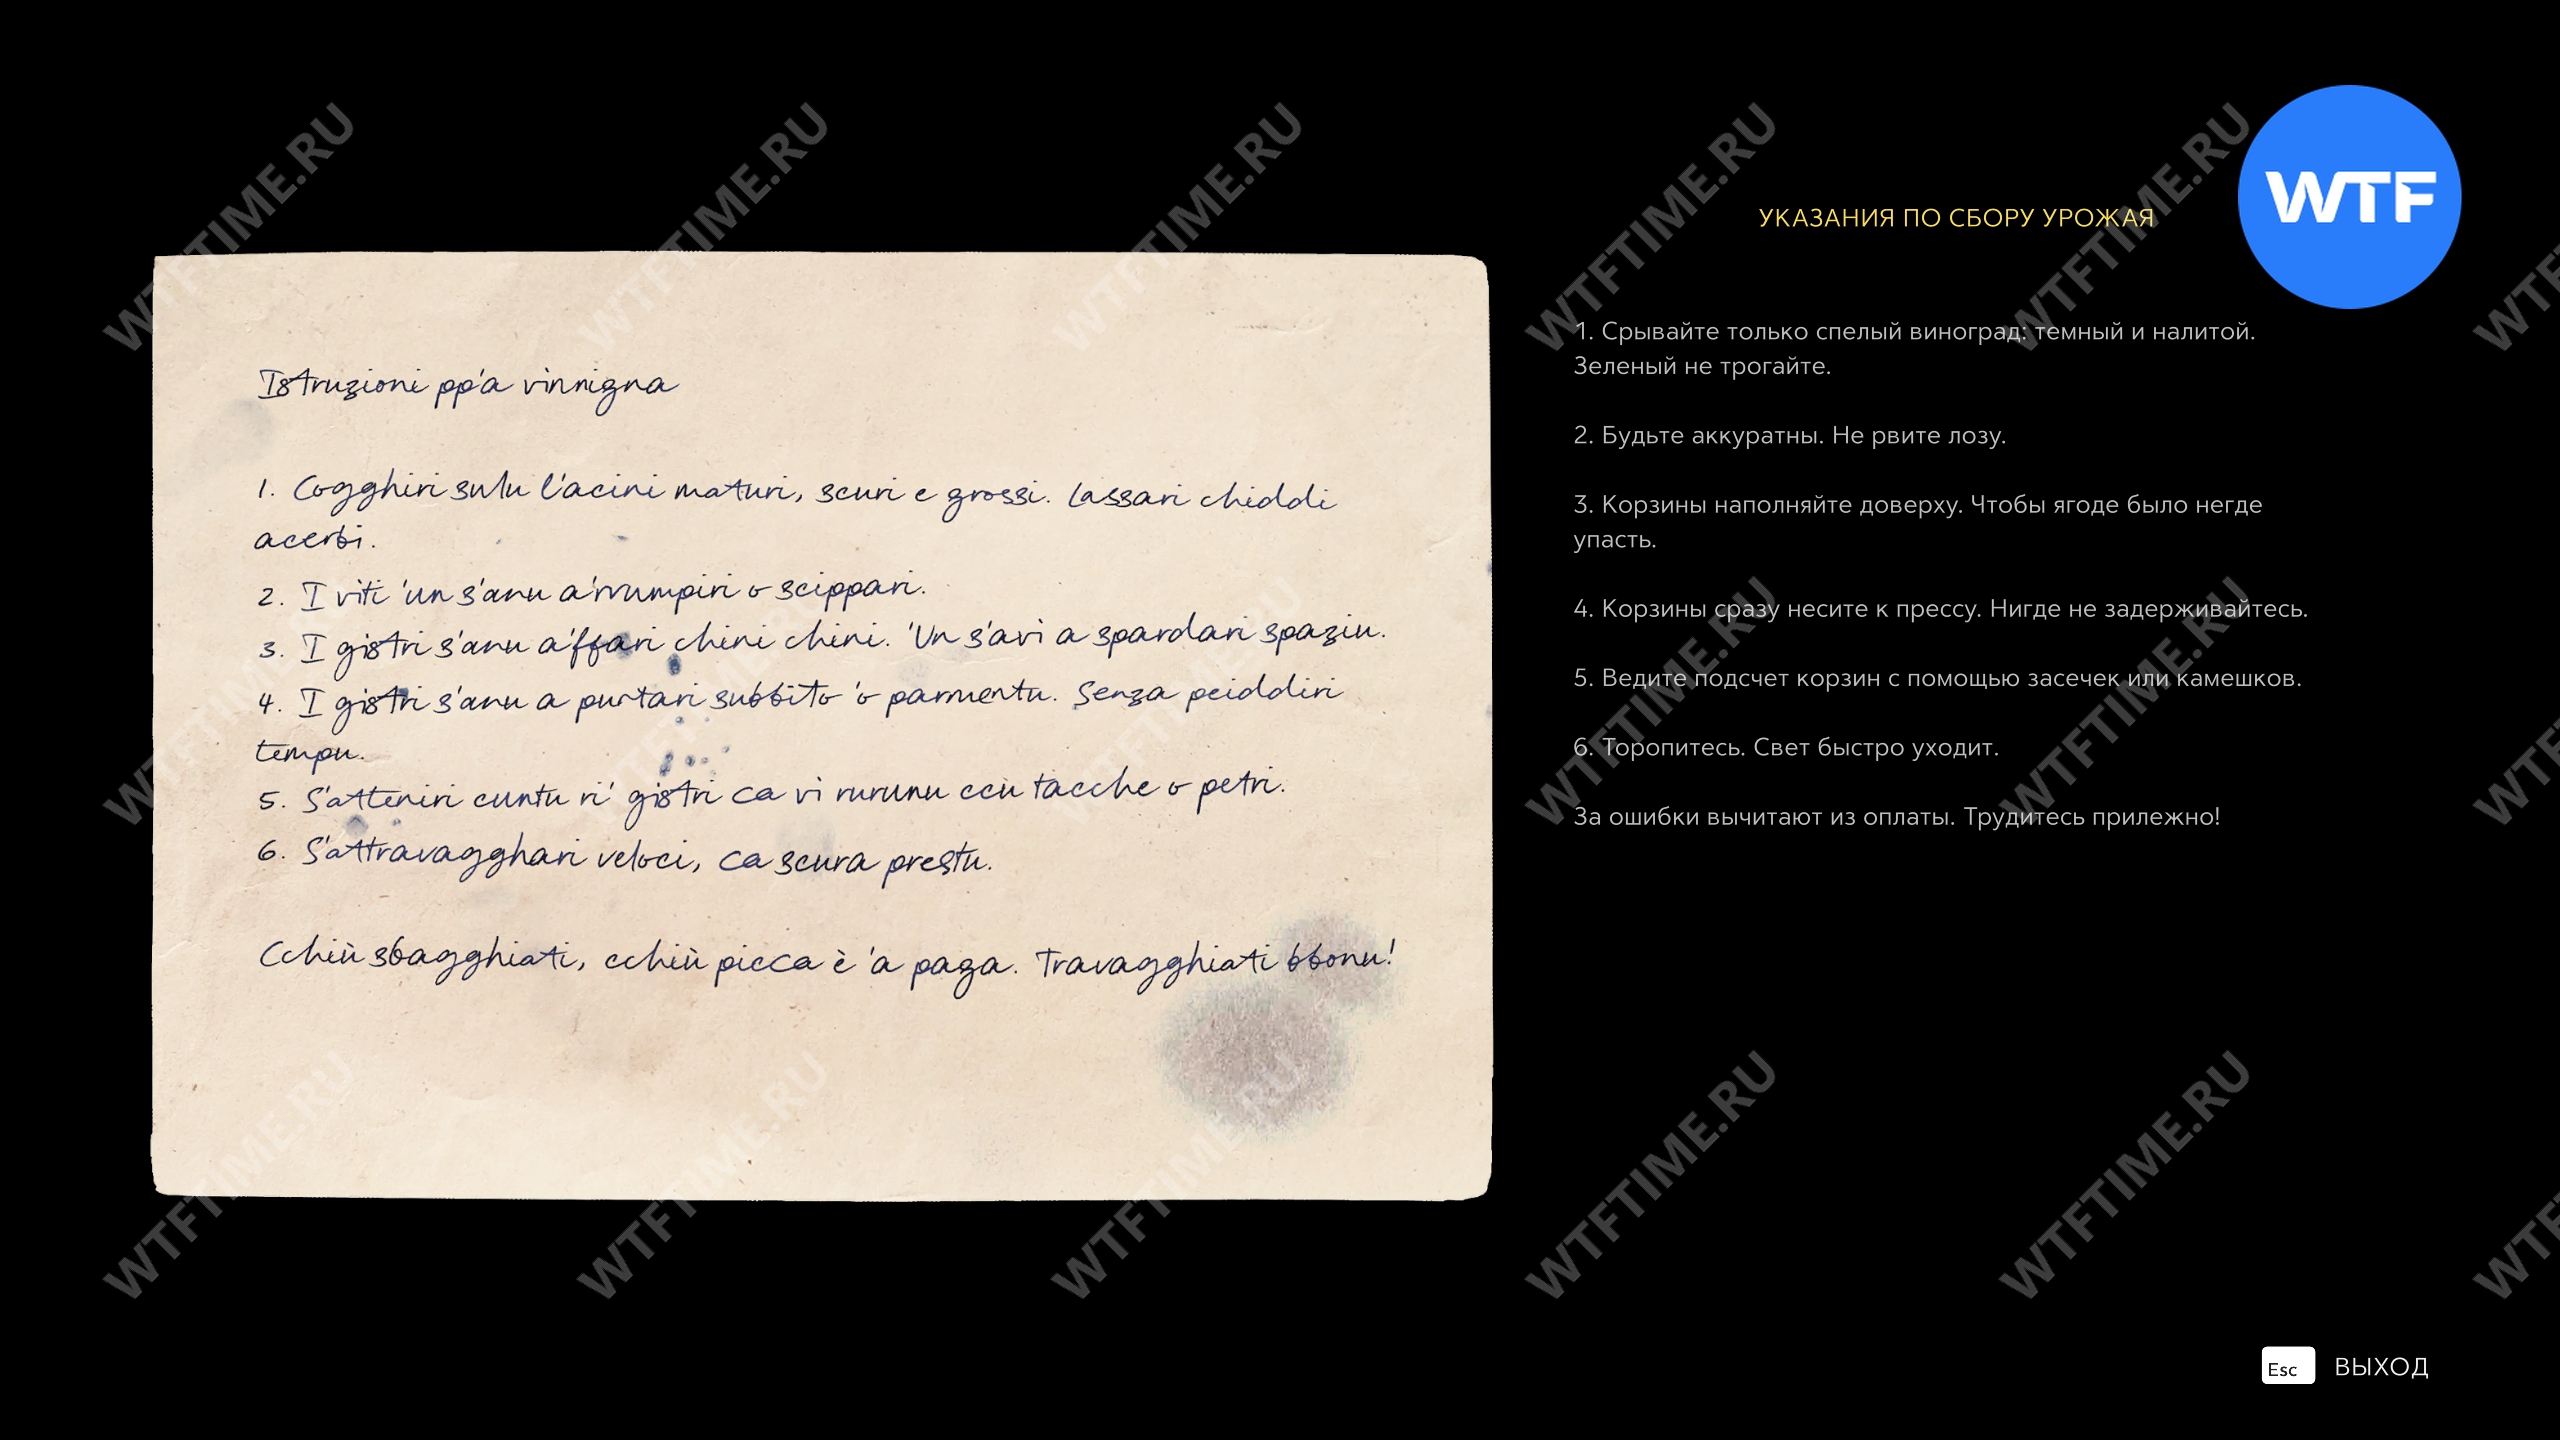 Istruzioni pp'a vinnigna
1. Cogghiri sulu l'acini maturi, scuri e grossi. Lassari chiddi
acerbi.
2. I viti 'un s'anu a'rrumpiri o scippari.
3. I gistri s'anu a'ffari chini chini. 'Un s'avi a spardari spaziu.
4. I gistri s'anu a purtari subbito 'o parmentu. Senza peiddiri
tempu.
5. S'atteniri cuntu ri' gistri ca vi rurunu ccu tacche o petri.
6. S'attravagghari veloci, ca scura prestu.
Cchiù sbagghiati, cchiù picca è 'a paga. Travagghiati bbonu!
WTF
УКАЗАНИЯ ПО СБОРУ УРОЖАЯ
1. Срывайте только спелый виноград: темный и налитой.
Зеленый не трогайте.
2. Будьте аккуратны. Не рвите лозу.
3. Корзины наполняйте доверху. Чтобы ягоде было негде
упасть.
4. Корзины сразу несите к прессу. Нигде не задерживайтесь.
5. Ведите подсчет корзин с помощью засечек или камешков.
6. Торопитесь. Свет быстро уходит.
За ошибки вычитают из оплаты. Трудитесь прилежно!
Esc ВЫХОД
WTFTIME.RU